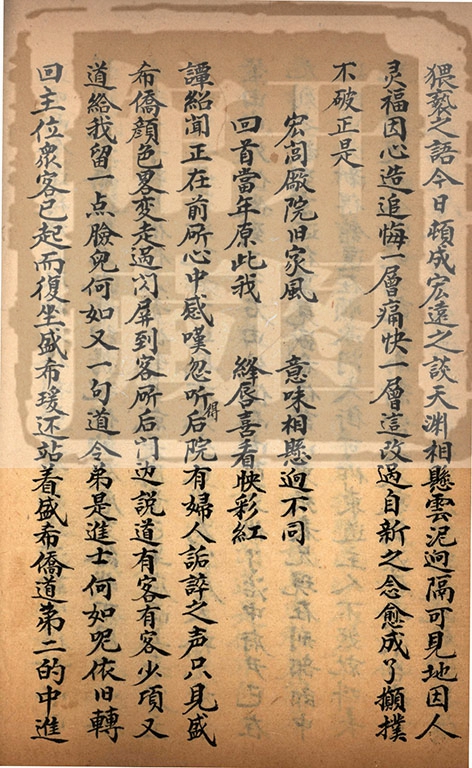 猥亵之語今日頓成宏遠之談天渊相懸雲泥逈隔可見地因人
灵福因心造追悔一層痛快一層這改過自新之念愈成了顛撲
不破正是
宏闊廠院旧家風　意味相懸逈不同
回首當年原此我　絳唇喜看映彩紅
譚紹聞正在前所心中感嘆忽听得后院有婦人詬誶之声只見盛
希僑顏色畧变走過闪屏到客所后门边説道有客有客少頃又
道給我留一点臉皃何如又一句道令弟是進士何如呢依旧轉
回主位衆客已起而復坐盛希瑗还站着盛希僑道第二的中進